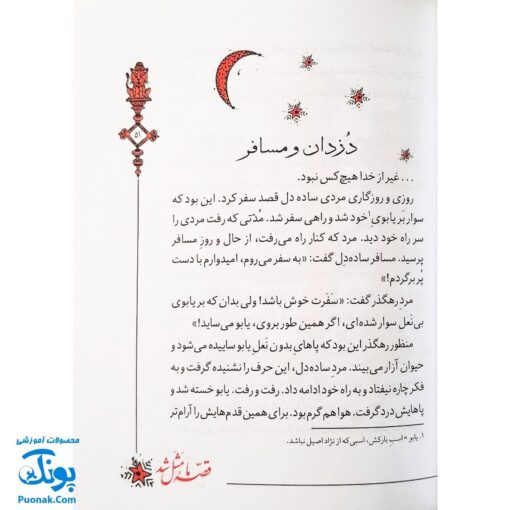 ۵۱
دُزدان و مسافر
... غیر از خدا هیچ‌کس نبود.
روزی و روزگاری مردی ساده دل قصد سفر کرد. این بود که
سوار بَر یابوی۱ خود شد و راهی سفر شد. مُدّتی که رفت مردی را
سر راه خود دید. مرد که کنار راه می‌رفت، از حال و روزِ مسافر
پرسید. مسافر ساده‌دِل گفت: «به سفر می‌روم، امیدوارم با دست
پُر برگردم!»
مردِ رهگذر گفت: «سَفَرت خوش باشد! ولی بدان که بر یابوی
بی‌نَعل سوار شده‌ای، اگر همین طور بروی، یابو می‌ساید!»
منظور رهگذر این بود که پاهایِ بدون نَعلِ یابو ساییده می‌شود و
حیوان آزار می‌بیند. مردِ ساده‌دل، این حرف را نشنیده گرفت و به
فکر چاره نیفتاد و به راه خود ادامه داد. رفت و رفت. یابو خسته شد و
پاهایش درد گرفت. هوا هم گرم بود. برای همین قدم‌هایش را آرام‌تر
۱. یابو = اسبِ بارکش، اسبی که از نژاد اصیل نباشد.
قصّه ما مَثَل شد
محصولات آموزشی
پونک
Puonak.Com